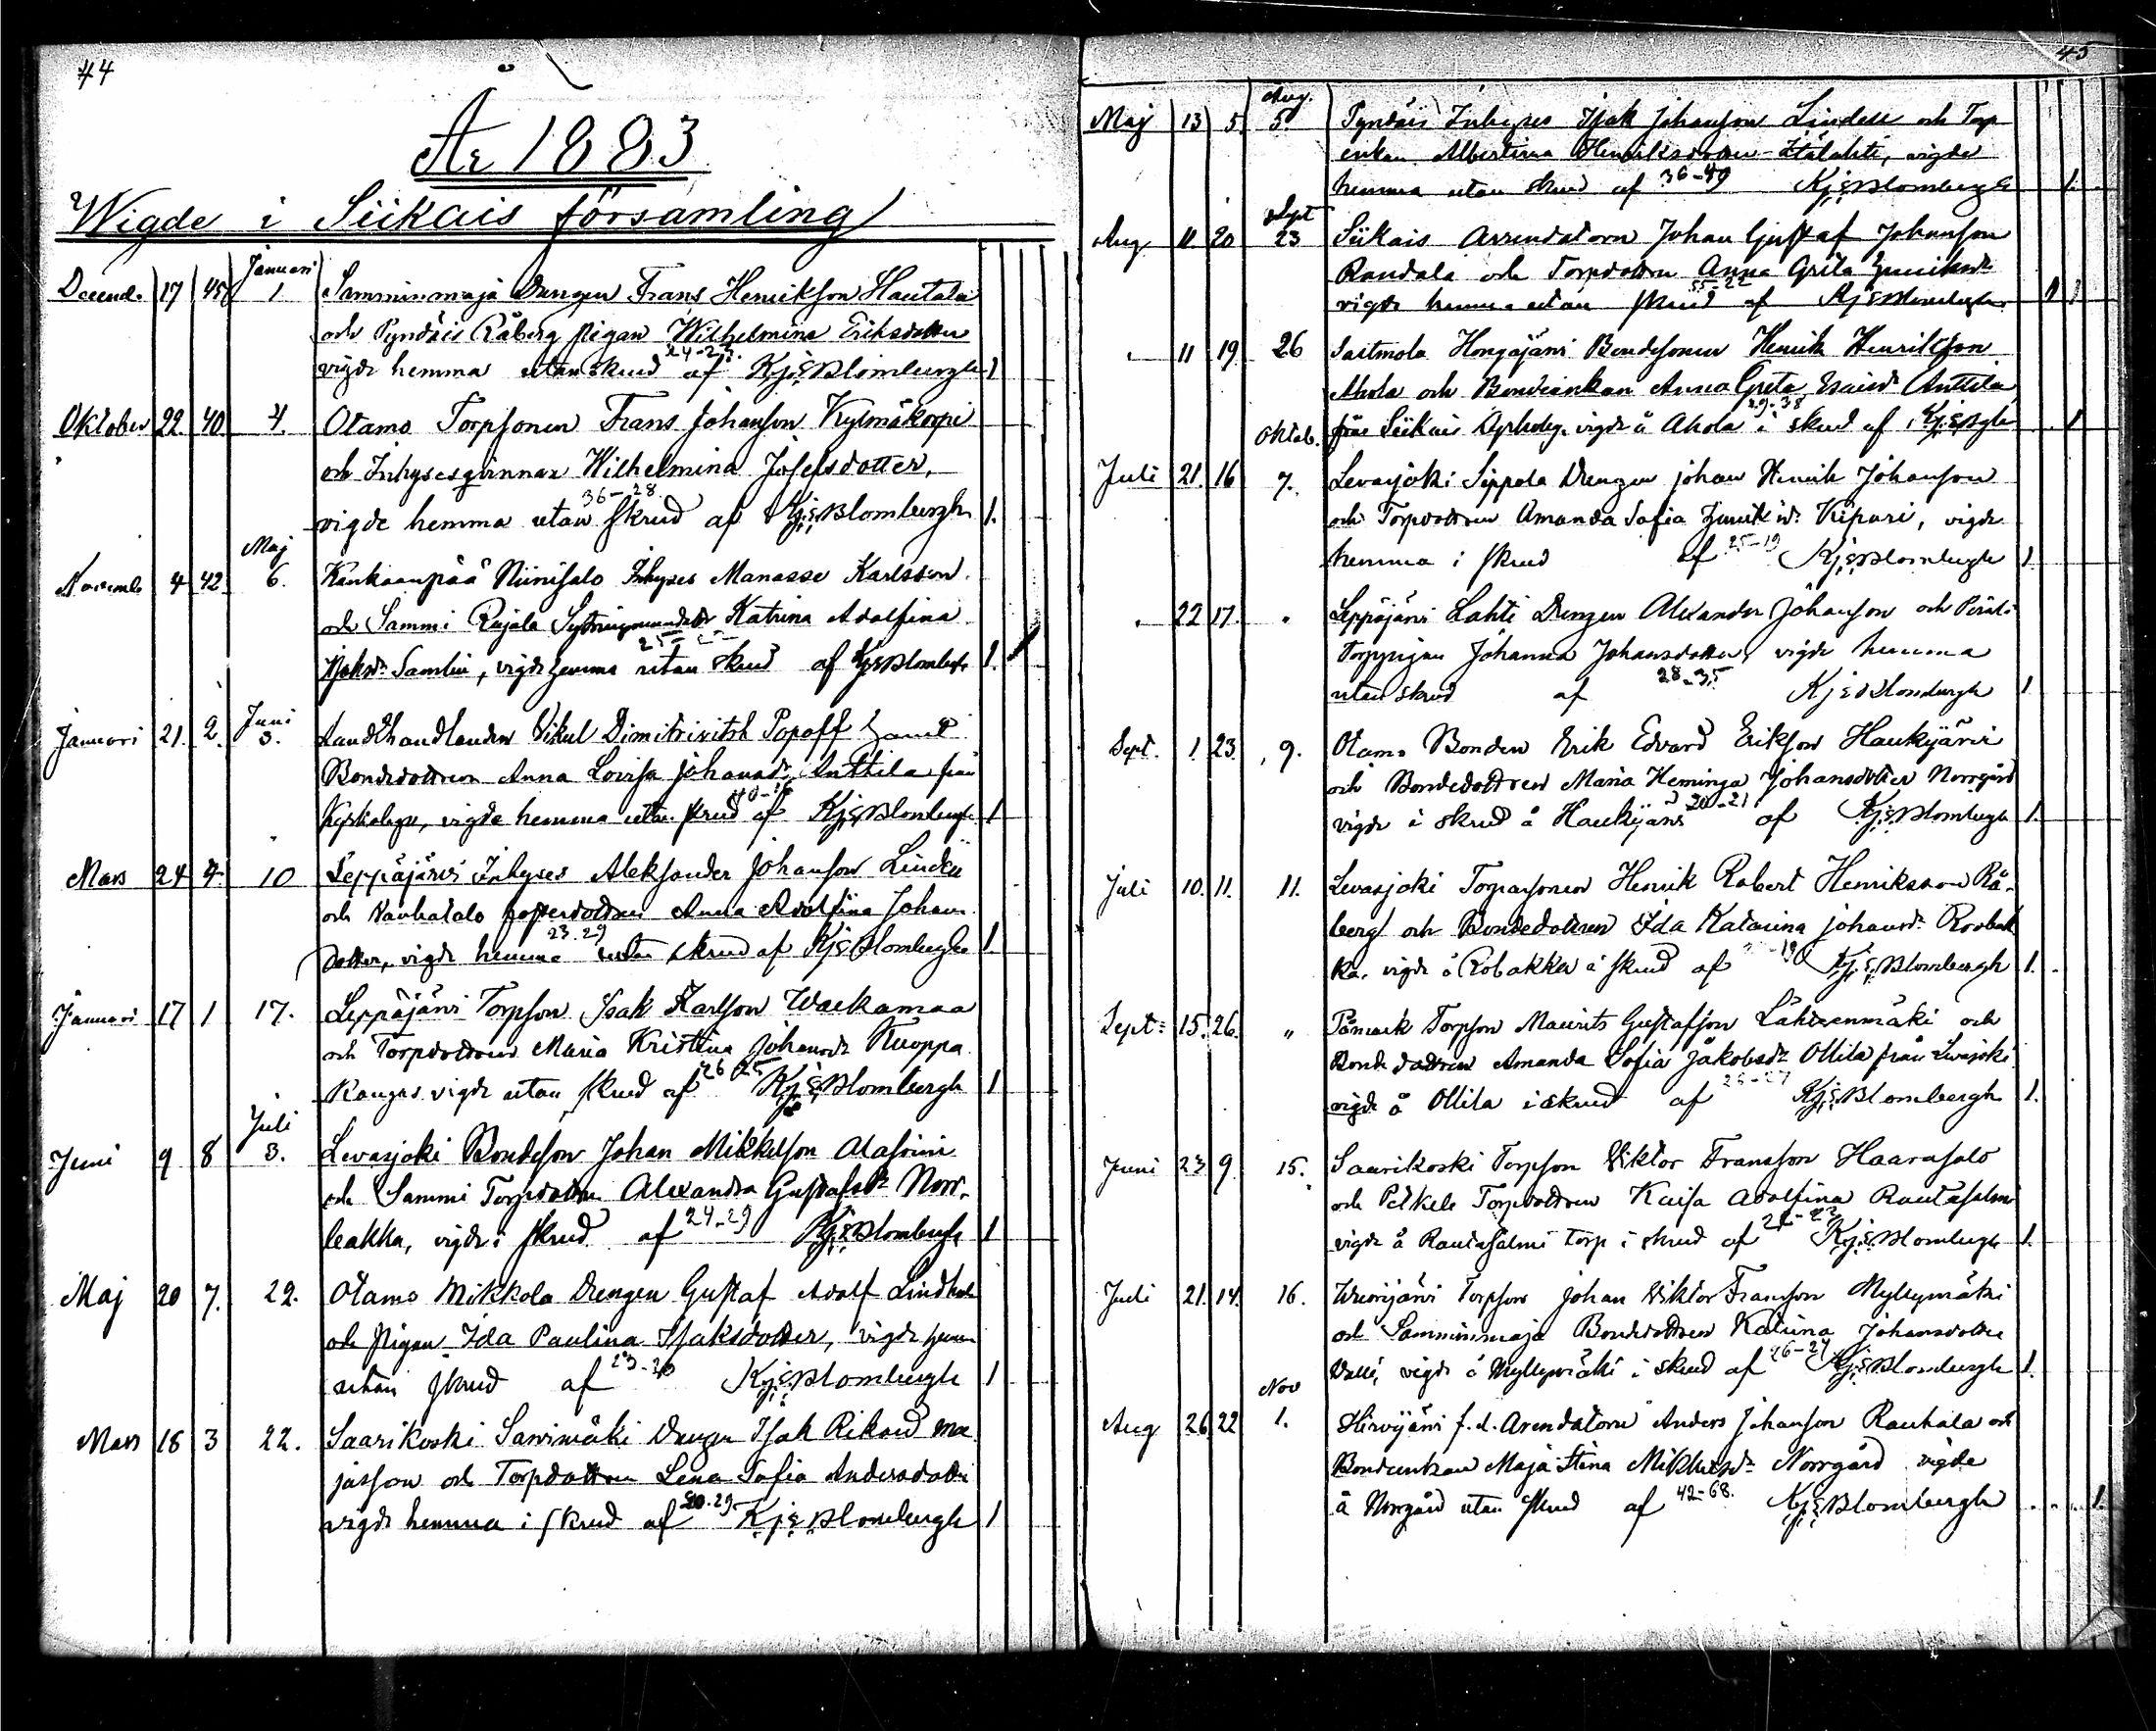 44
År 1883
Wigde i Siikais församling
Decemb. 17 45 Januari 1 Samminmaja Drengen Frans Henrikson Hautala
och Pyndäis Råberg pigan Wilhelmina Eriksdotter
24-23.
vigde hemma utan skrud af Kj: E: Blombergh 1
Oktober 22. 40 4. Otamo Torpsonen Frans Johanson Kylmäkorpi
och Inhysesqvinnan Wilhelmina Josefsdotter,
36-28.
vigde hemma utan skrud af Kj: E: Blombergh 1.
Novemb 4 42 Maj 6. Kankaanpää Niinisalo Inhyses Manasse Karlsson
och Sammi Rajala Katrina Adolfina
Samlin, vigde hemma utan skrud af Kj: E: Blombergh 1.
Januari 21. 2. Juni 3. Landthandlanden Vikul Dimitrivitsh Popoff
Bondedottren Anna Lovisa Johansdr Anttila från
Kyrkobyn, vigde hemma utan skrud af Kj: E: Blombergh 1
Mars 24 4. 10 Leppäjärvi Inhyses Aleksander Johanson
och Anna Adolfina Johans
23.29
dotter, vigde hemma utan skrud af Kj: E: Blombergh 1
Januari 17 1 17. Leppäjärvi Torpson Isak Karlson
och Torpdottren Maria Kristina Johansdr Kuoppa
26 25
Kangas vigde utan skrud af Kj: E: Blombergh 1
Juni 9 8 Juli 3. Levasjoki Bondeson Johan Mikkelson
och Sammi Torpdottren Alexandra Gustafsdr Norr-
24-29
leakka, vigde i skrud af Kj: E: Blombergh 1
Maj 20 7. 22. Otamo Mikkola Drengen Gustaf Adolf
och pigan Ida Paulina Isaksdotter, vigde hemma
utan skrud af Kj: E: Blombergh 1
Mars 18 3 22. Saarikoski Sarvimäki Drengen Isak Rikard Ma-
jasson och Torpdottren Lena Sofia Andersdotter
vigde hemma i skrud af Kj: E: Blombergh 1
45
Maj 13 5. Aug. 5. Pyndäis Inhyses Isak Johanson Lindell och Torp
enkan Albertina Henriksdotter Itälahti, vigde
36-49
hemma utan skrud af Kj: E: Blombergh 1.
Aug 11. 20 Sept 23 Siikais Arrendatorn Johan Gustaf Johanson
Randala och Torpdottren Anna Greta Henriksdr
55-22
vigde hemma utan skrud af Kj: E: Blombergh 1
" 11 19. 26 Sastmola Hongajärvi Bondesonen Henrik Henrikson
Ahola och Bondeenkan Anna Greta Esaisdr Anttila
29-38
från Siikais Kyrkoby, vigde å Ahola i skrud af Kj: E: Bgh 1
Juli 21. 16 Oktob. 7. Levasjoki Sippola Drengen Johan Henrik Johanson
och Torpdottren Amanda Sofia Henriksdr Kipari, vigde
25-19
hemma i skrud af Kj: E: Blombergh 1
" 22 17. " Leppäjärvi Lahti Drengen Alexander Johanson och
Torppigan Johanna Johansdotter, vigde hemma
28-35
utan skrud af Kj: E: Blombergh 1
Sept. 1. 23. 9. Otamo Bonden Erik Edvard Erikson Haukijärvi
och Bondedottren Maria Heminga Johansdotter Norrgård
20-21
vigde i skrud å Haukijärvi af Kj: E: Blombergh 1.
Juli 10. 11. 11. Levasjoki Torparsonen Henrik Robert Henriksson Rå-
berg och Bondedottren Ida Katarina Johansdr Roobak
ka. vigde å Robakka i skrud af Kj: E: Blombergh 1.
Sept: 15. 26. " Påmark Torpson Maurits Gustafson Lähteenmäki och
Bondedottren Amanda Sofia Jakobsdr Ollila från Levasjoki
26-27
vigde å Ollila i skrud af Kj: E: Blombergh 1.
Juni 23 9. 15. Saarikoski Torpson Viktor Franson Haarasalo
och Petkele Torpdottren Kaisa Adolfina Rautasalmi
vigde å Rautasalmi torp i skrud af Kj: E: Blombergh 1.
Juli 21. 14. 16. Wuorijärvi Torpson Johan Viktor Franson Myllymäki
och Samminmaja Bondedottren Katrina Johansdotter
26-27
Valli, vigde å Myllymäki i skrud af Kj: E: Blombergh 1.
Aug 26 22 Nov 1. Hirvijärvi f.d. Arendatorn Anders Johanson Rauhala och
Bondeenkan Maja Stina Mikkelsdr Norrgård vigde
42-68.
å Norrgård utan skrud af Kj: E: Blombergh 1.